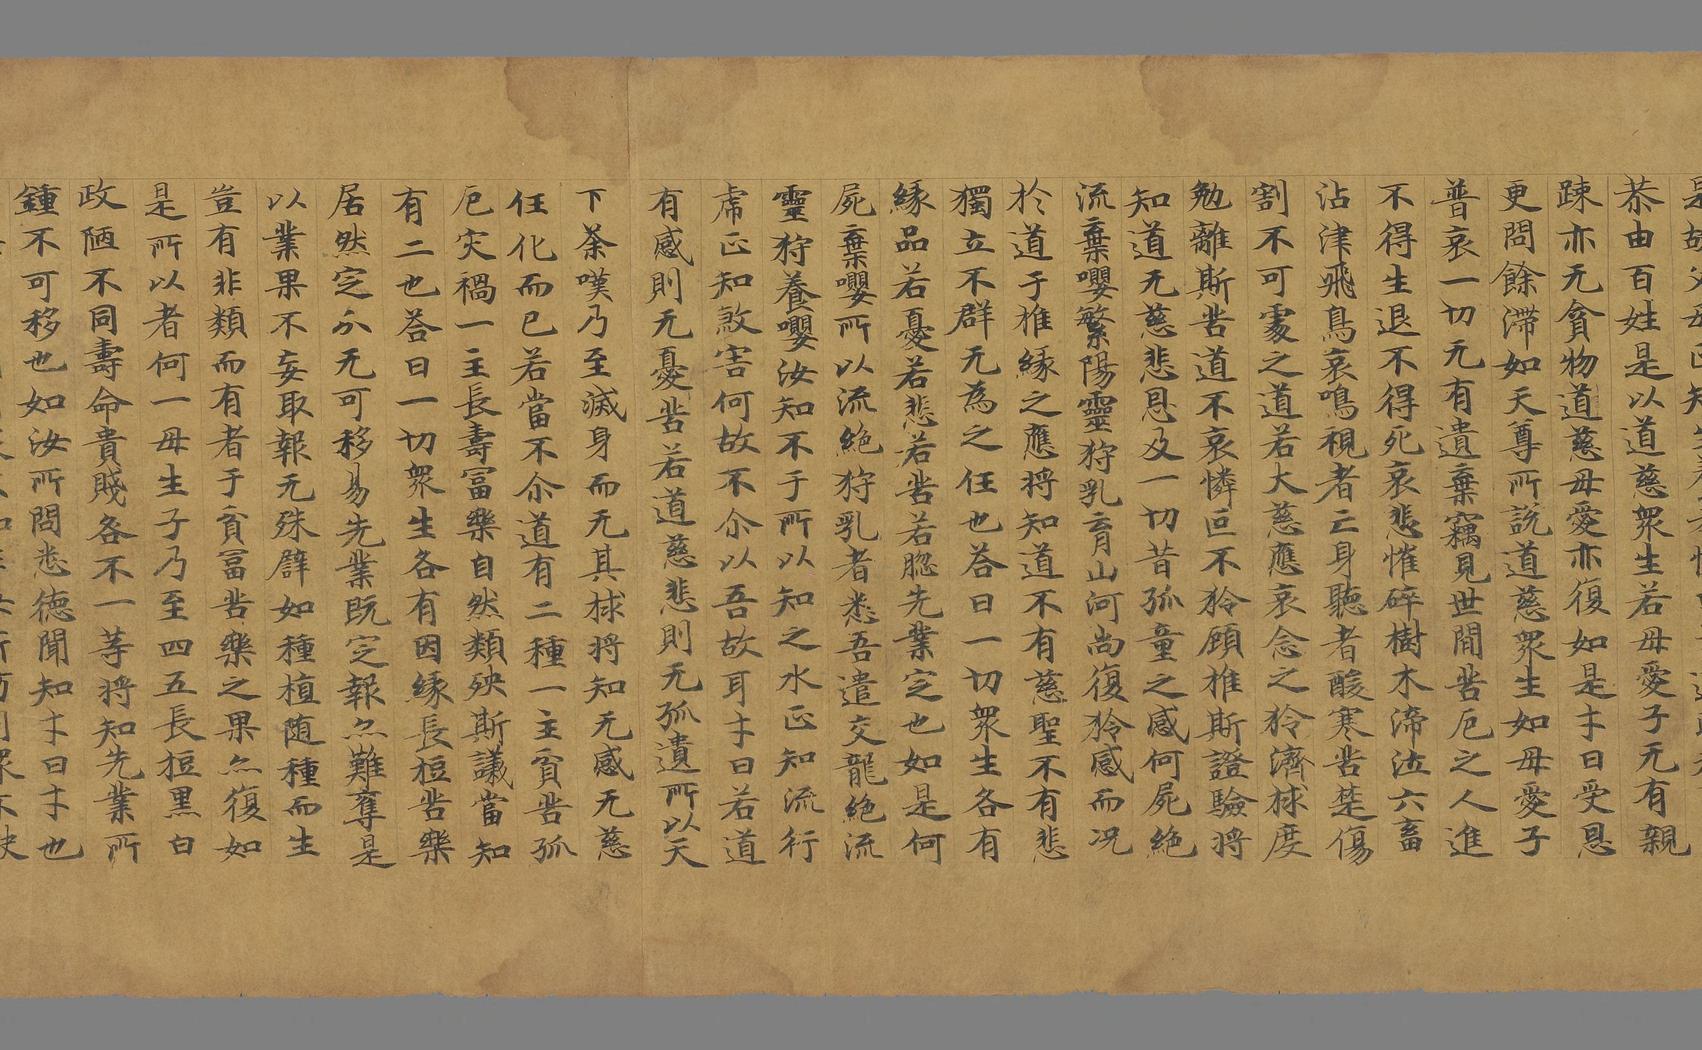 恭由百姓是以道慈衆生若母愛子无有親
踈亦无貪物道慈母愛亦復如是十曰受恩
更問餘滯如天尊所說道慈衆生如母愛子
普哀一切无有遺棄竊見世間苦厄之人進
不得生退不得死哀悲摧碎樹木渧泣六畜
沾津飛鳥哀鳴視者亡身聽者酸寒苦楚傷
割不可處之道若大慈應哀念之矜濟拯度
勉離斯苦道不哀憐叵不矜顧推斯證驗將
知道无慈悲恩及一切昔孤童之感何屍絕
流棄嬰繁陽靈狩乳育山河尚復矜感而况
於道于推緣之應將知道不有慈聖不有悲
獨立不群无為之任也荅曰一切衆生各有
緣品若憂若悲若苦若惱先業定也如是何
屍棄嬰所以流絕狩乳者悉吾遣交龍絕流
靈狩養嬰汝知不于所以知之水正知流行
虎正知煞害何故不尒以吾故耳十曰若道
有感則无憂苦若道慈悲則无孤遺所以天
下荼嘆乃至滅身而无其拯將知无感无慈
任化而已若當不尒道有二種一主貧苦孤
厄灾禍一主長壽冨樂自然類殃斯議當知
有二也荅曰一切衆生各有因緣長短苦樂
居然定分无可移易先業既定報亦難奪是
以業果不妄取報无殊辟如種植随種而生
豈有非類而有者于貧冨苦樂之果亦復如
是所以者何一母生子乃至四五長短黒白
政陋不同壽命貴賤各不一等將知先業所
鍾不可移也如汝所問悉德聞知十曰十也